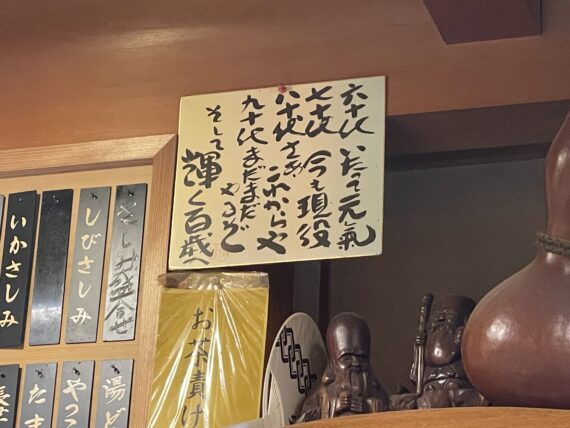 六十代 いたって元氣
七十代 今も現役
八十代 さあ
これからや
九十代 まだまだ
やるぞ
そして
輝く百歳へ
さしみ盛合せ
しびさしみ
いかさしみ
お茶漬け